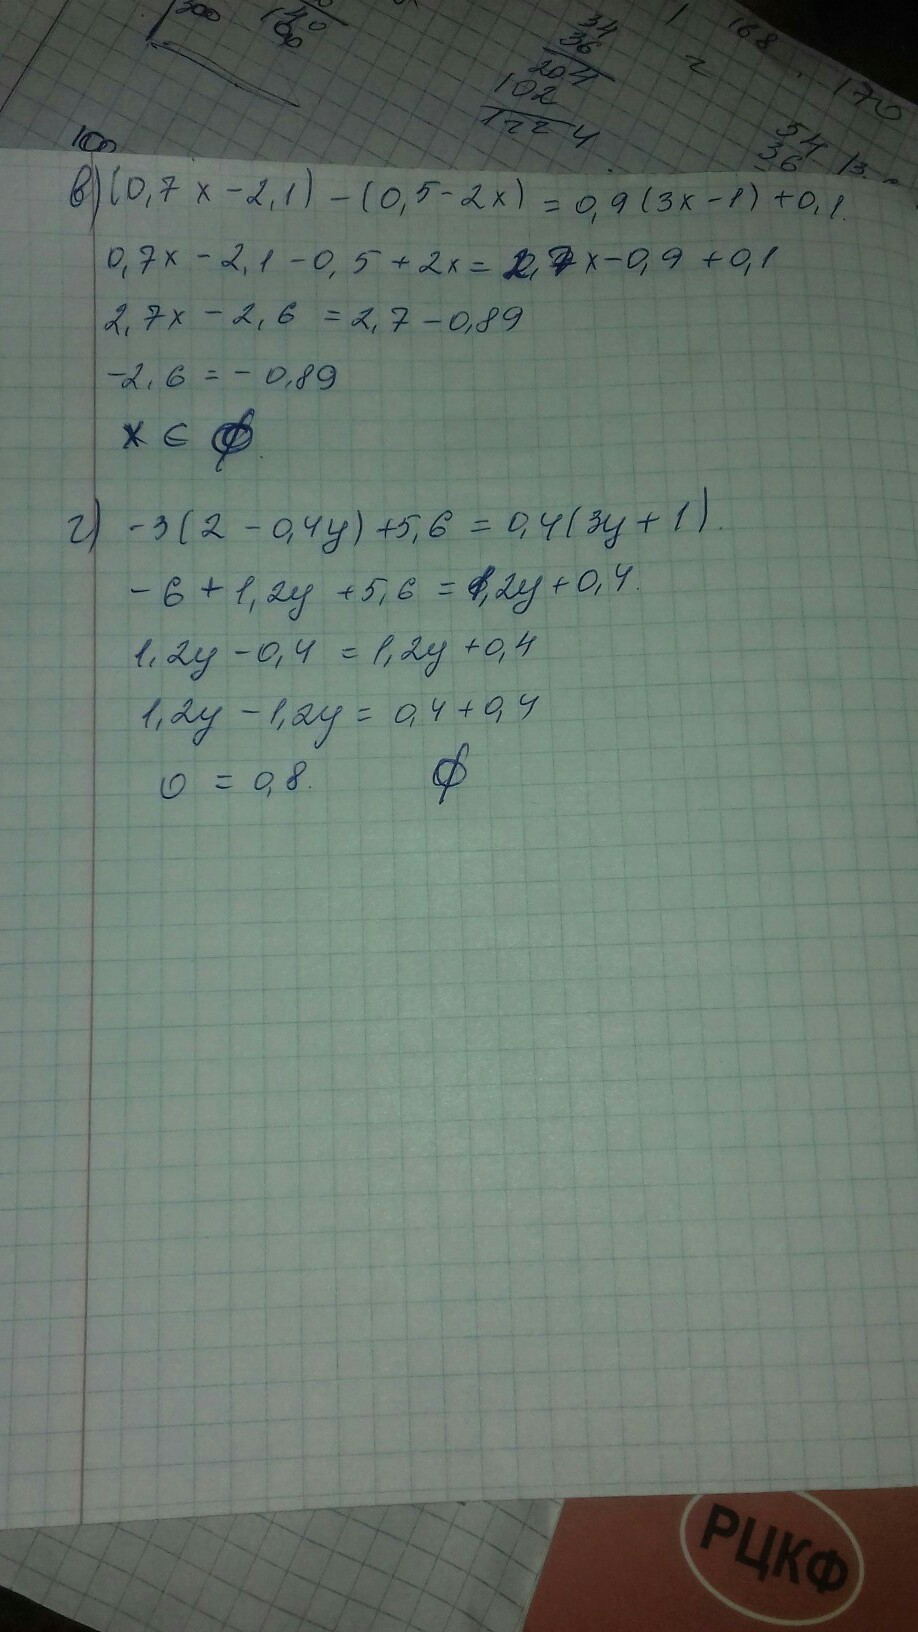 300
34
36
204
102
1224
168
170
54
36
100
в) (0,7x - 2,1) - (0,5 - 2x) = 0,9(3x - 1) + 0,1.
0,7x - 2,1 - 0,5 + 2x = 2,7x - 0,9 + 0,1
2,7x - 2,6 = 2,7 - 0,89
-2,6 = -0,89
x ∈ ∅.
г) -3(2 - 0,4y) + 5,6 = 0,4(3y + 1).
-6 + 1,2y + 5,6 = 1,2y + 0,4.
1,2y - 0,4 = 1,2y + 0,4
1,2y - 1,2y = 0,4 + 0,4
0 = 0,8. ∅
РЦКФ